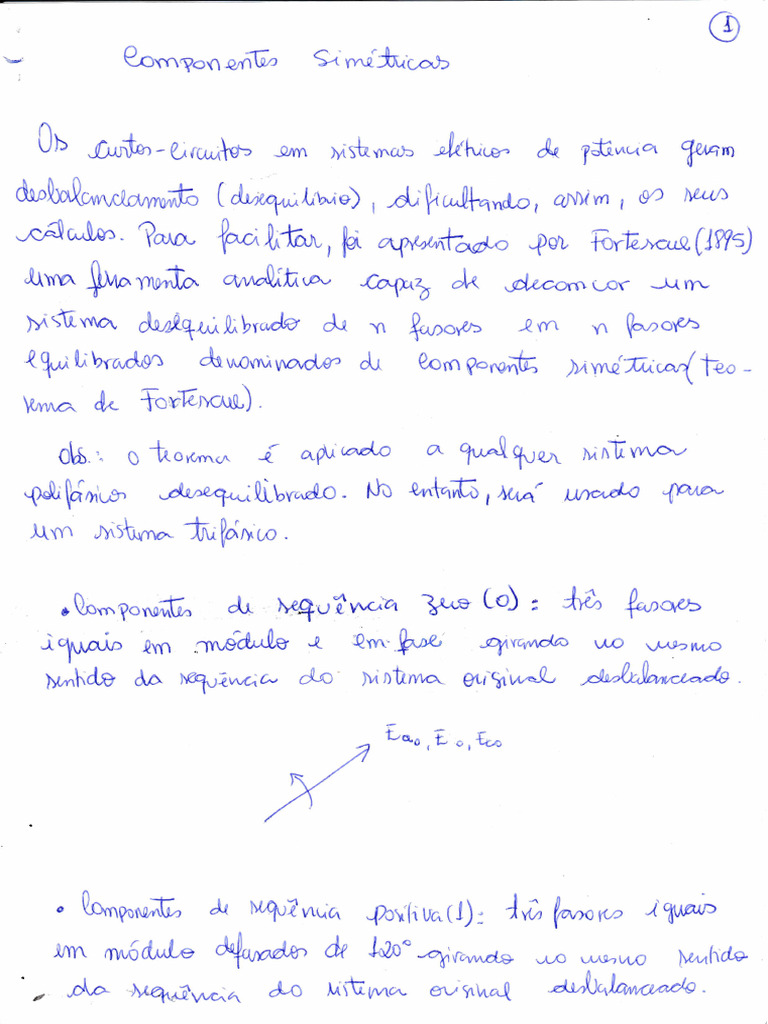 1
Componentes Simétricas
Os curtos-circuitos em sistemas elétricos de potência geram
desbalanceamento (desequilíbrio), dificultando, assim, os seus
cálculos. Para facilitar, foi apresentado por Fortescue (1895)
uma ferramenta analítica capaz de decomcor um
sistema desequilibrado de n fasores em n fasores
equilibrados denominados de componentes simétricas (teo-
rema de Fortescue).
Obs.: o teorema é aplicado a qualquer sistema
polifásicos desequilibrado. No entanto, será usado para
um sistema trifásico.
• Componentes de sequência zero (0): três fasores
iguais em módulo e em fase girando no mesmo
sentido da sequência do sistema original desbalanceado.
Ea0, E 0, Ec0
• Componentes de sequência positiva (1): três fasores iguais
em módulo defasados de 120° girando no mesmo sentido
da sequência do sistema original desbalanceado.